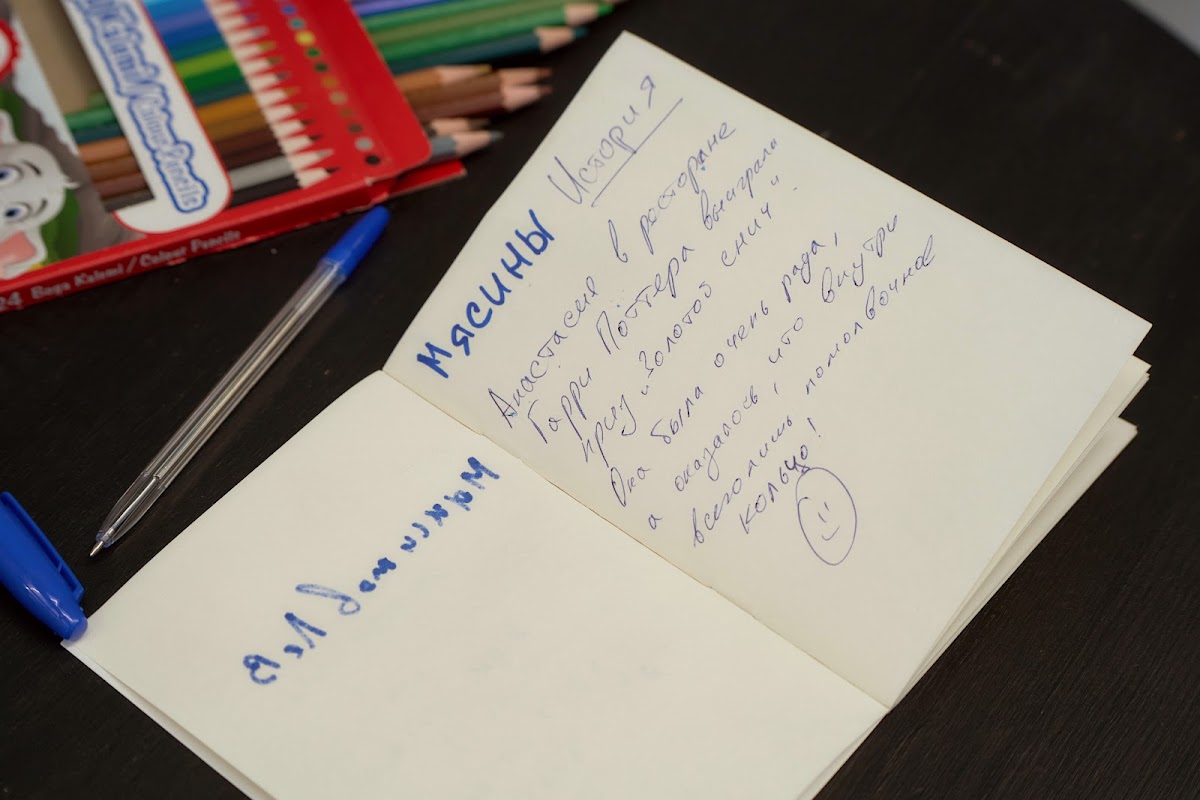 24 Boya Kalemi / Colour Pencils
Colour Pencils
История
МЯСИНЫ
Анастасия в ресторане
Гарри Поттера выиграла
приз „Золотой снич".
Она была очень рада,
а оказалось, что внутри
всеголишь помолвочное
кольцо!